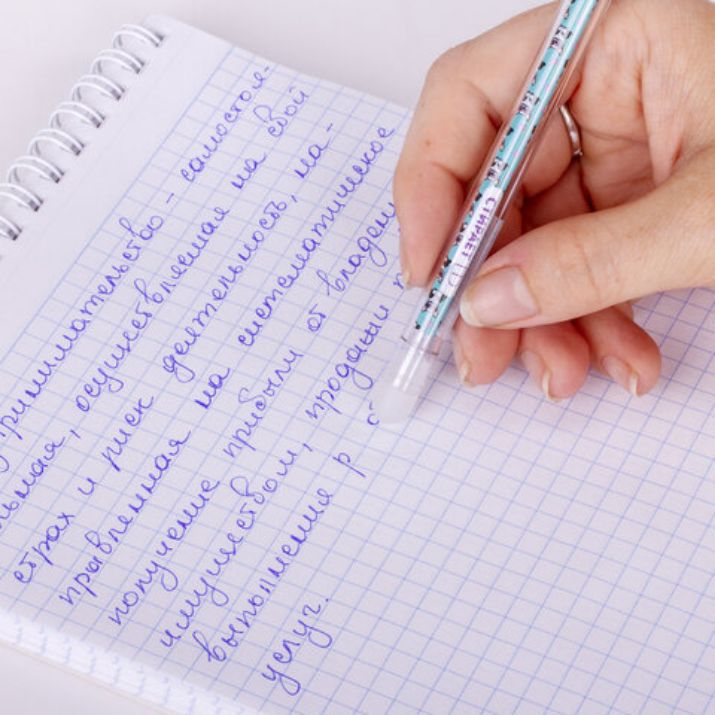 принимательство - самостоя-
льная, осуществляемая на свой
страх и риск деятельность, на-
правленная на систематическое
получение прибыли от владени
имуществом, продажи т
выполнения р
услуг.
СТИРАЕТ